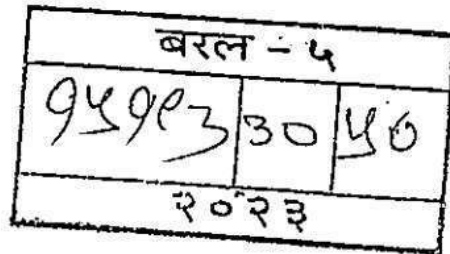 बरल - ५
१५१९३ ३० ५०
२०२३